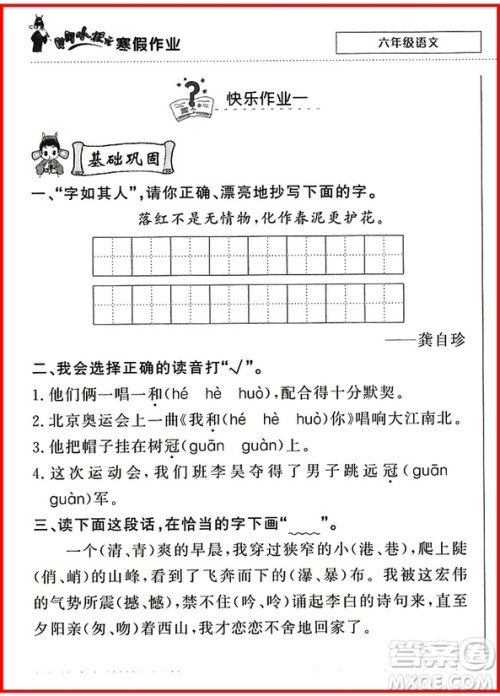 寒假作业
六年级语文
快乐作业一
基础巩固
一、“字如其人”，请你正确、漂亮地抄写下面的字。
落红不是无情物，化作春泥更护花。
——龚自珍
二、我会选择正确的读音打“√”。
1. 他们俩一唱一和(hé hè huò)，配合得十分默契。
2. 北京奥运会上一曲《我和(hé hè huò)你》唱响大江南北。
3. 他把帽子挂在树冠(guān guàn)上。
4. 这次运动会，我们班李昊夺得了男子跳远冠(guān
guàn)军。
三、读下面这段话，在恰当的字下画“﹏﹏”。
一个(清、青)爽的早晨，我穿过狭窄的小(港、巷)，爬上陡
(俏、峭)的山峰，看到了飞奔而下的(瀑、暴)布。我被这宏伟
的气势所震(撼、憾)，(吟、呤)诵起李白的诗句来，直至
夕阳亲(匆、吻)着西山，才恋恋不舍地离去。
答案圈
MXQE.COM